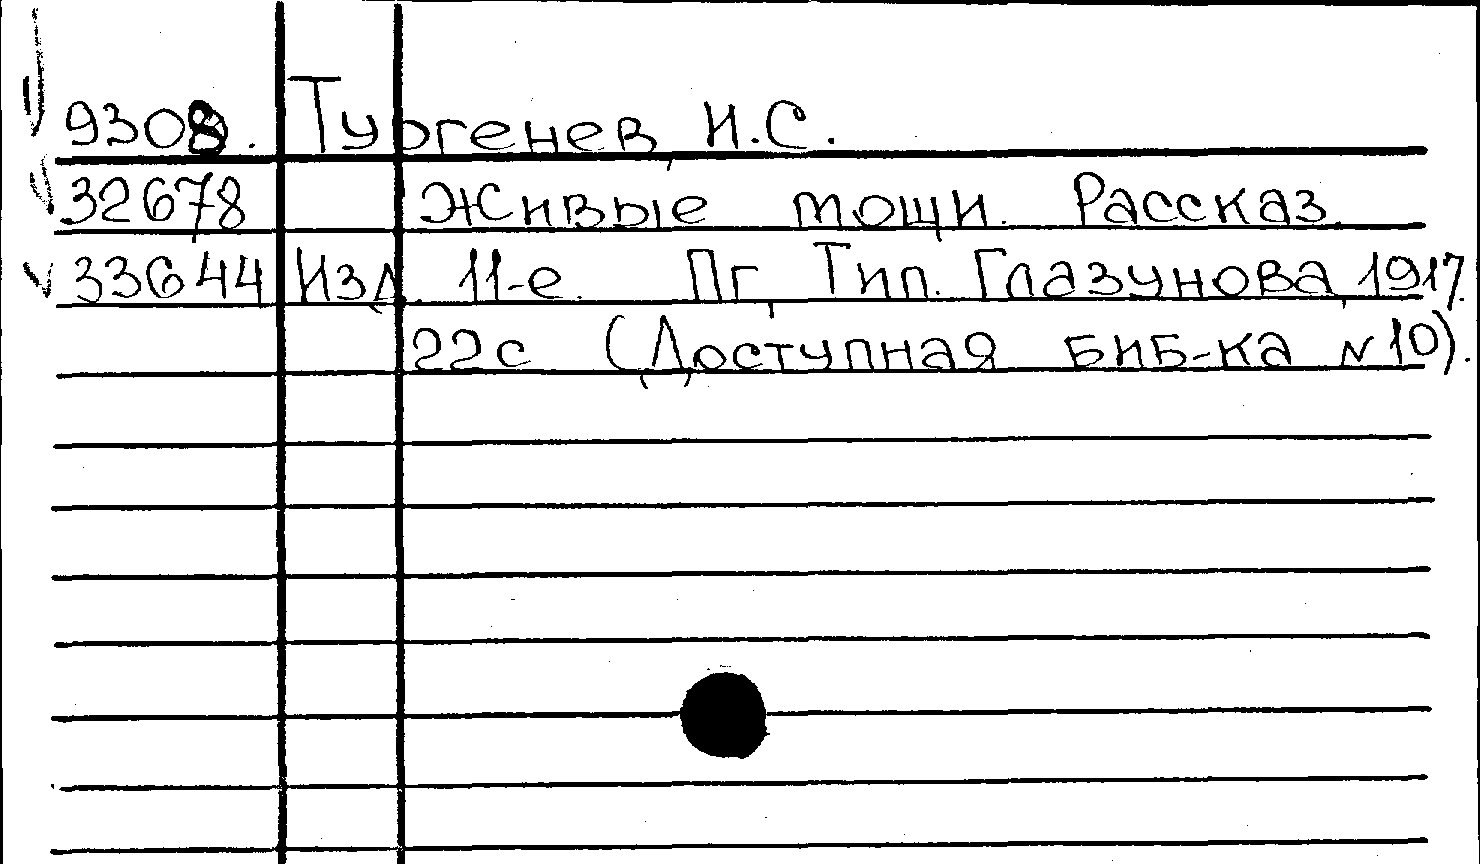 9308. Тургенев, И.С.
32678 Живые мощи. Рассказ.
33644 Изд. 11-е. Пг, Тип. Глазунова, 1917.
22с (Доступная биб-ка N10).